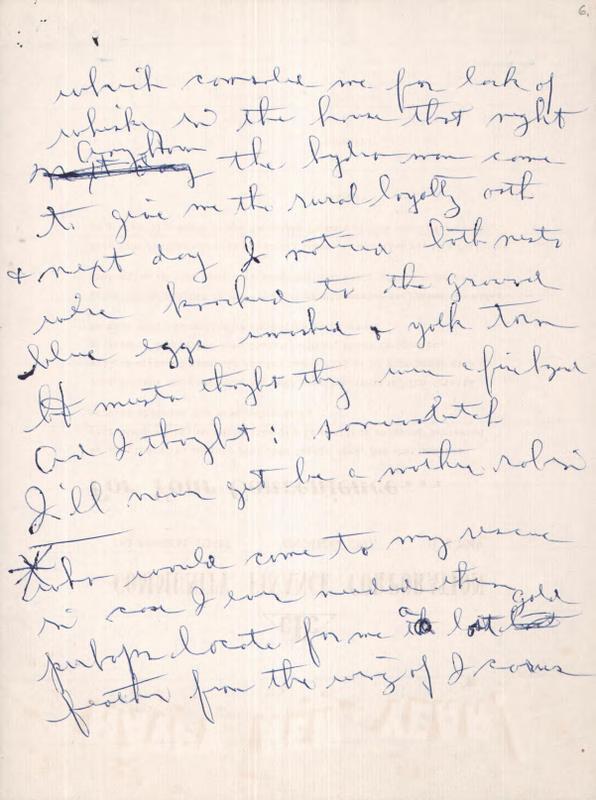 6.
which console me for lack of
whisky in the house that night
Anyhow
the hydro man come
to give me the rural loyalty oath
& next day I noticed both nests
were knocked to the ground
blue eggs smashed & yolk torn
He musta thoght they were a
And I thoght: sonovabitch
I'll never get be a mother robin
who would come to my rescue
in case I ever needed
gold
perhaps locate for me a lost
feather from the wing of Icarus